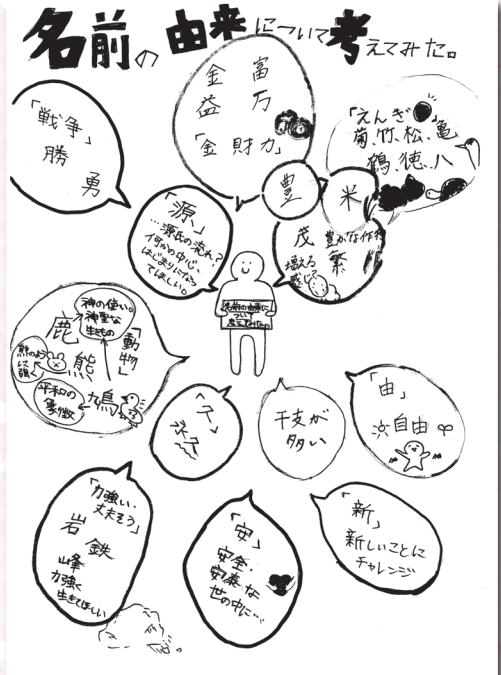 名前の由来について考えてみた。
「戦争」
勝
勇
金 富
益 万
「金 財力」
「えんぎ」
菊、竹、松、亀
鶴、徳、八
豊
米
「源、」
…源氏の流れ?
何かの中心、
はじまりになって
ほしい。
茂 豊かな作物
増える 繁
感じ?
名前の由来に
ついて
考えてみた。
神の使い。
神聖な
生きもの
「動物」
鹿
熊
熊のように強く
鳩
平和の
象徴
「久」
永久
干支が
多い
「由」
自由
「力強い、
丈夫そう」
岩 鉄
峰
力強く
生きてほしい
「安」
安全、
安泰な
世の中に…
「新」
新しいことに
チャレンジ